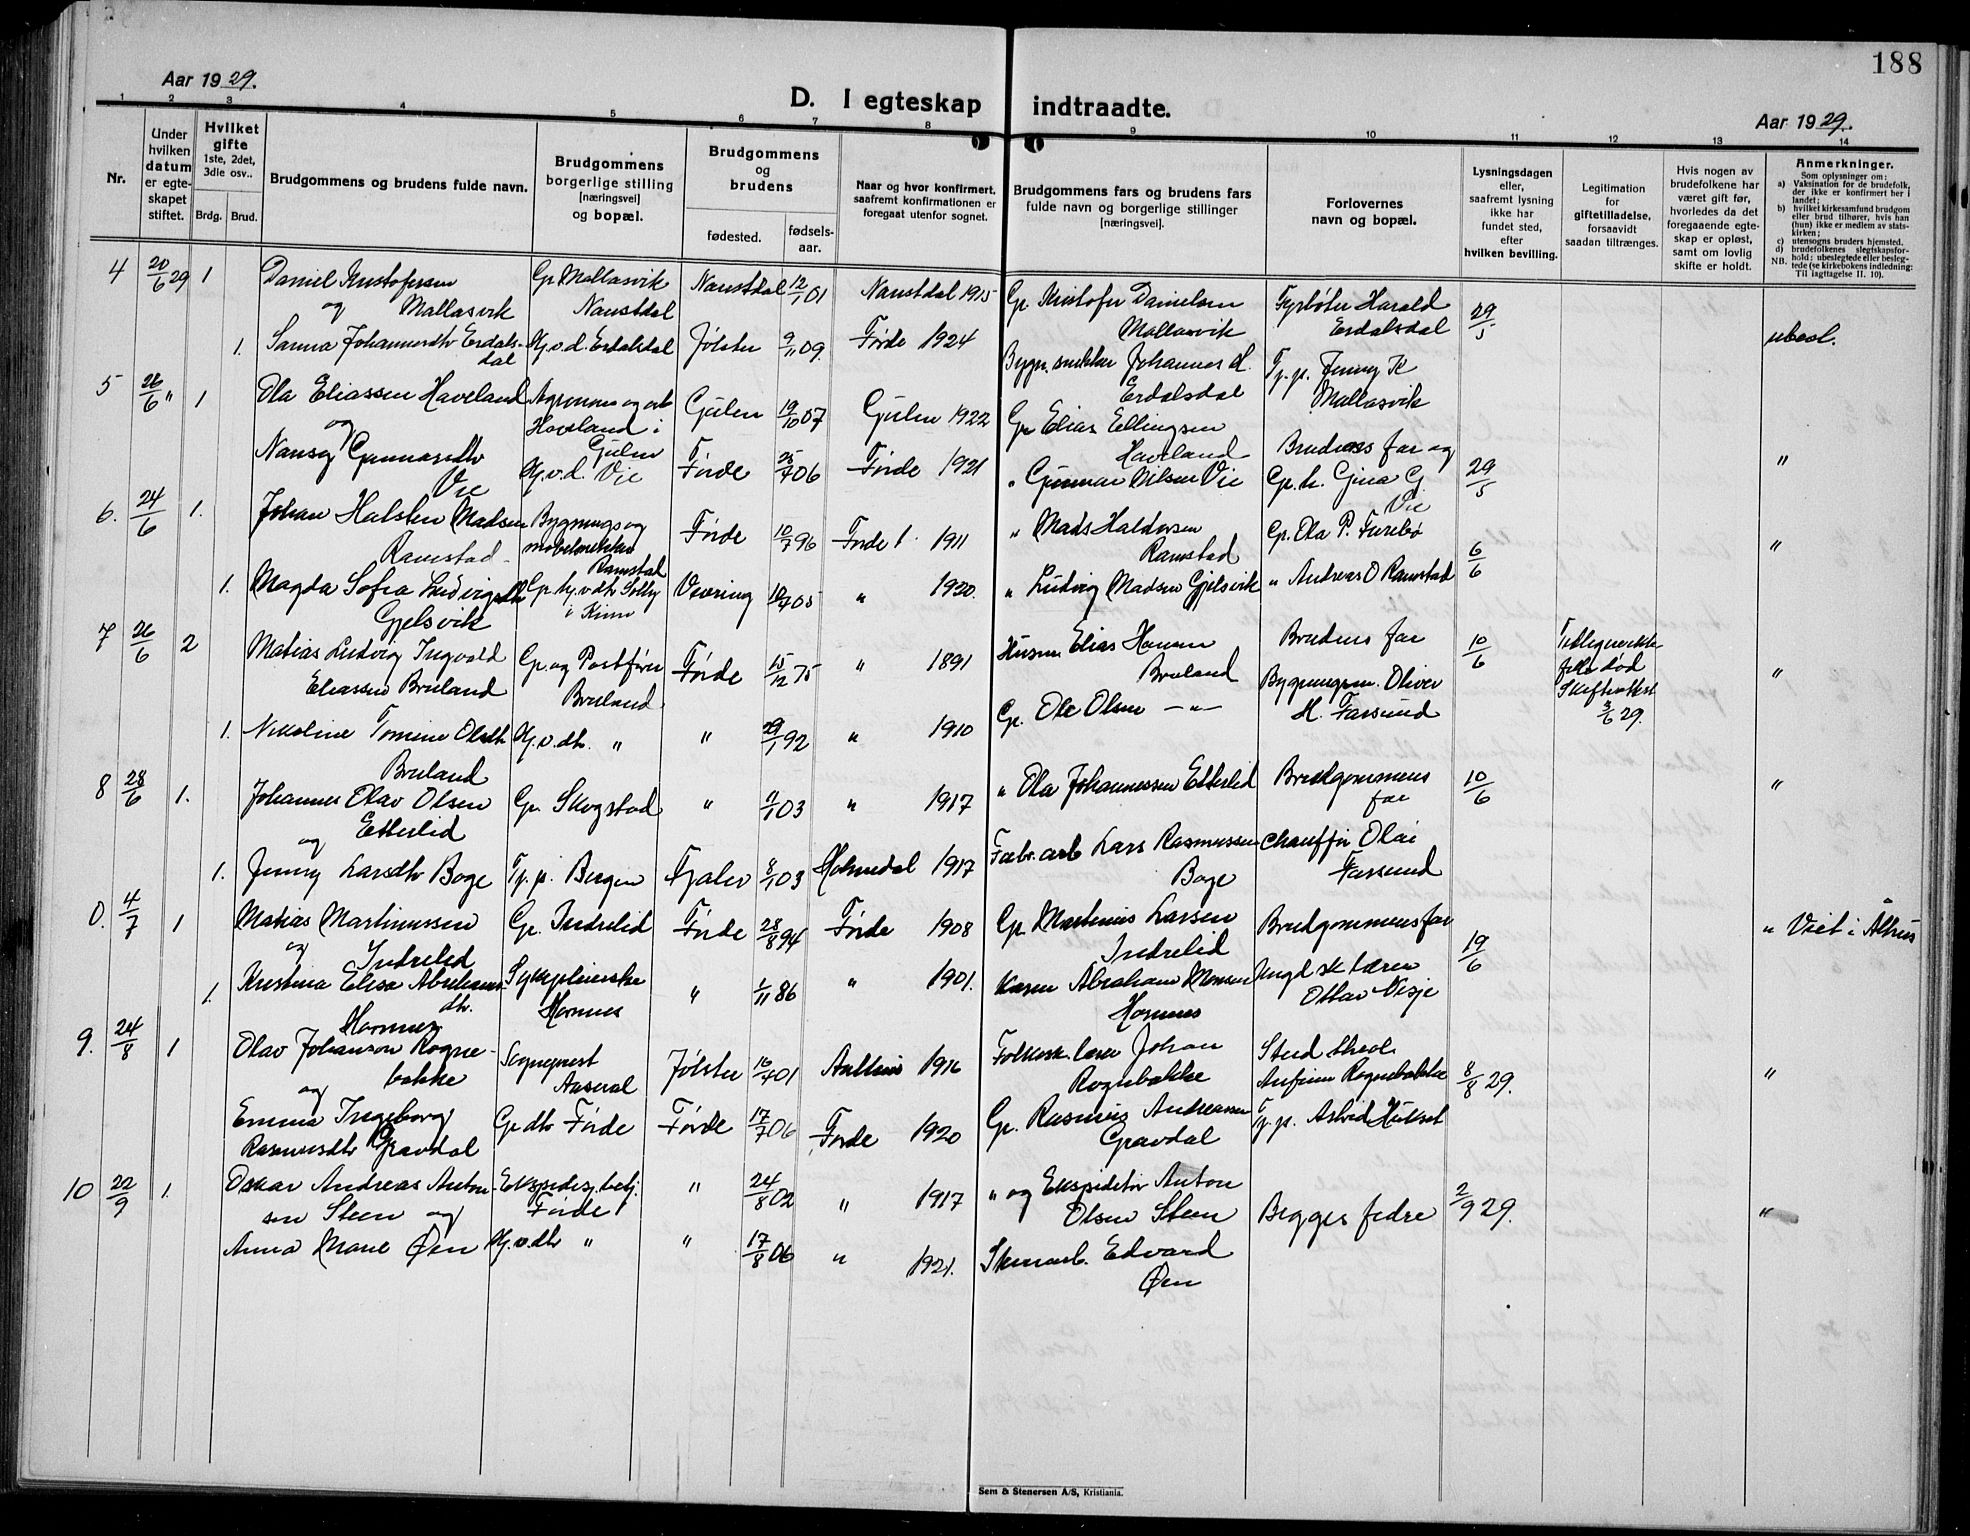 188
Aar 1929.
D. I egteskap indtraadte.
Aar 1929.
1 2 3 4 5 6 7 8 9 10 11 12 13 14
Nr.
Under hvilken datum er egteskapet stiftet.
Hvilket gifte 1ste, 2det, 3die osv..
Brdg. Brud.
Brudgommens og brudens fulde navn.
Brudgommens borgerlige stilling [næringsvei] og bopæl.
Brudgommens og brudens
fødested. fødselsaar.
Naar og hvor konfirmert, saafremt konfirmationen er foregaat utenfor sognet.
Brudgommens fars og brudens fars fulde navn og borgerlige stillinger [næringsvei].
Forlovernes navn og bopæl.
Lysningsdagen eller, saafremt lysning ikke har fundet sted, efter hvilken bevilling.
Legitimation for giftetilladelse, forsaavidt saadan tiltrænges.
Hvis nogen av brudefolkene har været gift før, hvorledes da det foregaaende egteskap er opløst, samt om lovlig skifte er holdt.
Anmerkninger.
Som oplysninger om:
a) Vaksination for de brudefolk, der ikke er konfirmert her i landet;
b) hvilket kirkesamfund brudgom eller brud tilhører, hvis han (hun) ikke er medlem av statskirken;
c) utensogns bruders hjemsted.
d) brudefolkenes slegtskapsforhold: ubeslegtede eller beslegtede (se kirkebokens indledning:
NB. Til Iagttagelse II. 10).
4 20/6 29 1 Daniel Kristofersen Gp. Mallasvik Naustdal 12/1 01 Naustdal 1915 Gp. Kristofer Danielsen Fyrbøter Harald 29/5
og Mallasvik Naustdal Mallasvik Erdalsdal
1. Sanna Johannesdtr Erdalsdal Hj.v.d. Erdalsdal Jølster 9/11 09. Førde 1924 Bygn. snekker Johannes M. Erdalsdal Tj.p. Jenny K Mallasvik ubesl.
5 26/6 " 1 Ola Eliassen Haveland Agronom og arb Haveland i Gulen Gulen 19/10 07 Gulen 1922 Gp Elias Ellingsen Haveland Brudens far og
og
Nansy Gunnarsdtr Vie Hj.v.d. Vie Førde 25/4 06 Førde 1921 " Gunnar Nilsen Vie Gp. h. Gina G Vie 29/5 "
6. 24/6 1. Johan Halsten Madsen Ramstad Bygnings og møbelsnekker Ramstad Førde 10/7 96 Førde 1. 1911 " Mads Haldorsen Ramstad Gp. Ola P. Furebø 6/6 "
1. Magda Sofia Ludvigsdtr Gjelsvik Gp. hj.v dtr Solby i Kinn Vevring 10/4 05 " 1920. " Ludvig Madsen Gjelsvik " Andreas O Ramstad
7 26/6 2 Matias Ludvig Ingvald Eliassen Bruland Gp. og Postfører Bruland Førde 15/12 75 " 1891 Husm. Elias Hansen Bruland Brudens far 10/6 død Skifteattest 3/6 29. "
1. Nikoline Tomine Olsdtr Bruland Hj.v.dtr. " " 29/1 92 " 1910 Gp. Ole Olsen —"— Bygningsm. Oliver H. Farsund
8 28/6 1. Johannes Olav Olsen Etterlid Gp. Skogstad " 9/1 03 " 1917 " Ola Johannessen Etterlid Brudgommens far 10/6 "
og
1. Jenny Larsdtr Boge Tj.p. Bergen Fjaler 8/1 03 Holmedal 1917 Fabr. arb Lars Rasmussen Boge Chauffør Olai Farsund
0. 4/7 1 Matias Martinussen Indrelid Gp. Indrelid Førde 28/8 94 Førde 1908 Gp. Martinus Larsen Indrelid Brudgommens far 19/6 " Viet i Ålhus
og
1. Kristina Elisa Abrahamsdtr. Hornnes Sykepleierske Hornnes " 1/11 86 " 1901. Abraham Monsen Hornnes Ungd sk lærer Ottar Visje
9. 24/8 1 Olav Johanson Rognebakke Sogneprest Aaseral Jølster 16/4 01 Aalhus 1916 Folkesk. lærer Johan Rognebakke Stud theol. Anfinn Rognebakke 8/8 29. "
og
Emma Ingeborg Rasmusdtr Gravdal Gp dtr Førde Førde 17/7 06 Førde 1920 Gp. Rasmus Andreassen Gravdal Tj.p. Astrid Hukset
10 22/9 1. Oskar Andreas Antonsen Steen og Ekspedisj. betj. Førde " 24/8 02 " 1917 " og Ekspeditør Anton Olsen Steen Begges fedre 2/9 29. "
Anna Marie Øen Hj.v.dtr " " 17/8 06 " 1921. Stenarb. Edvard Øen
Sem & Stenersen A/S, Kristiania.